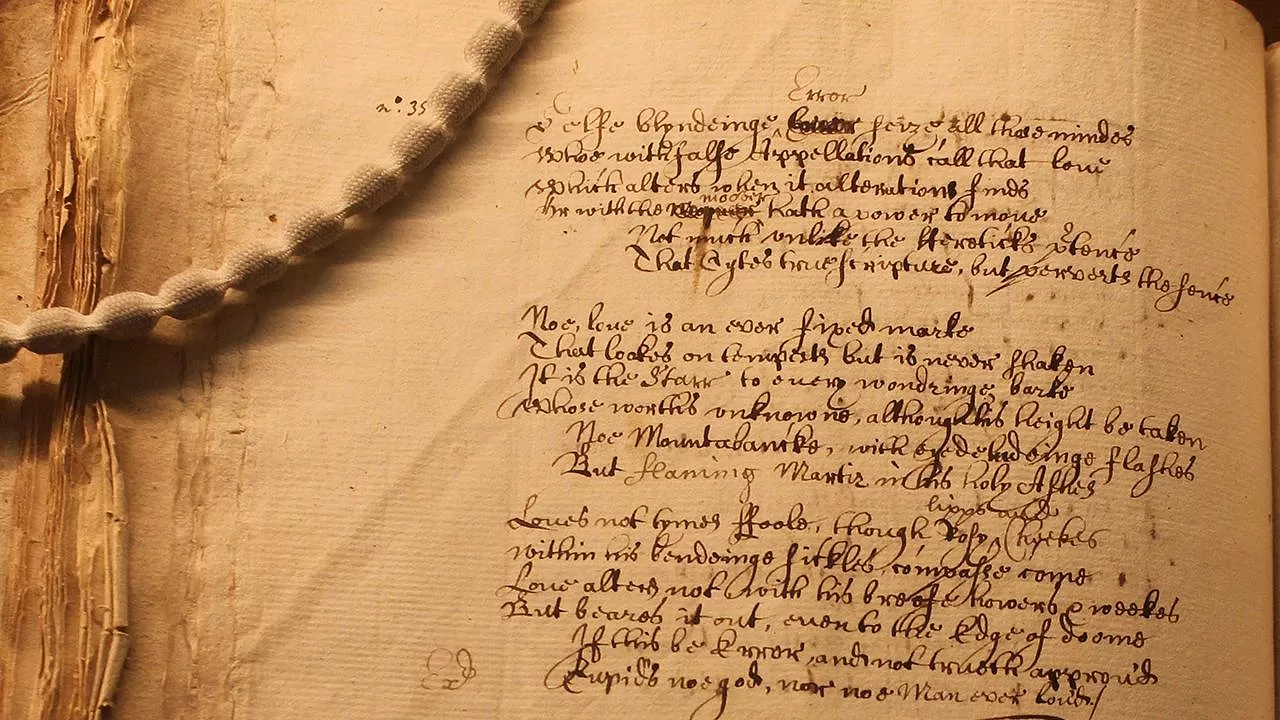 Error
n°: 35
Selfe blyndeinge seize all those mindes
Whoe with falſe Appellations call that love
Which alters when it alterations finds
moover
Or with the hath a power to move
Not much unlike the Hereticks p̄tence
That Cytes true ſcripture, but perverts the ſence
Noe, love is an ever fixed marke
That lookes on tempeſts but is never ſhaken
It is the Starr to every wondringe barke
Whose worth's unknowne, although his height be taken
Noe Mountabancke, with eyedeludeinge flaſhes
But flaming Martir in his holy Aſhes
lipps and
Loves not tymes ffoole, though Rosy Cheekes
within his bendeinge ſickles compaſſe come
Love alters not with his breefe howers & weekes
But beares it out, even to the Edge of doome
If this be Error, and not trueth approv'd
Cupids noe god, nor noe Man ever lov'd /